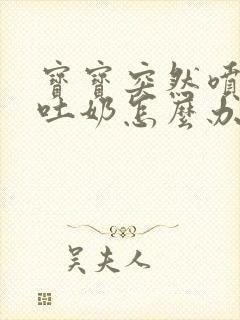 寶寶突然噴
吐奶怎麼办
吳夫人